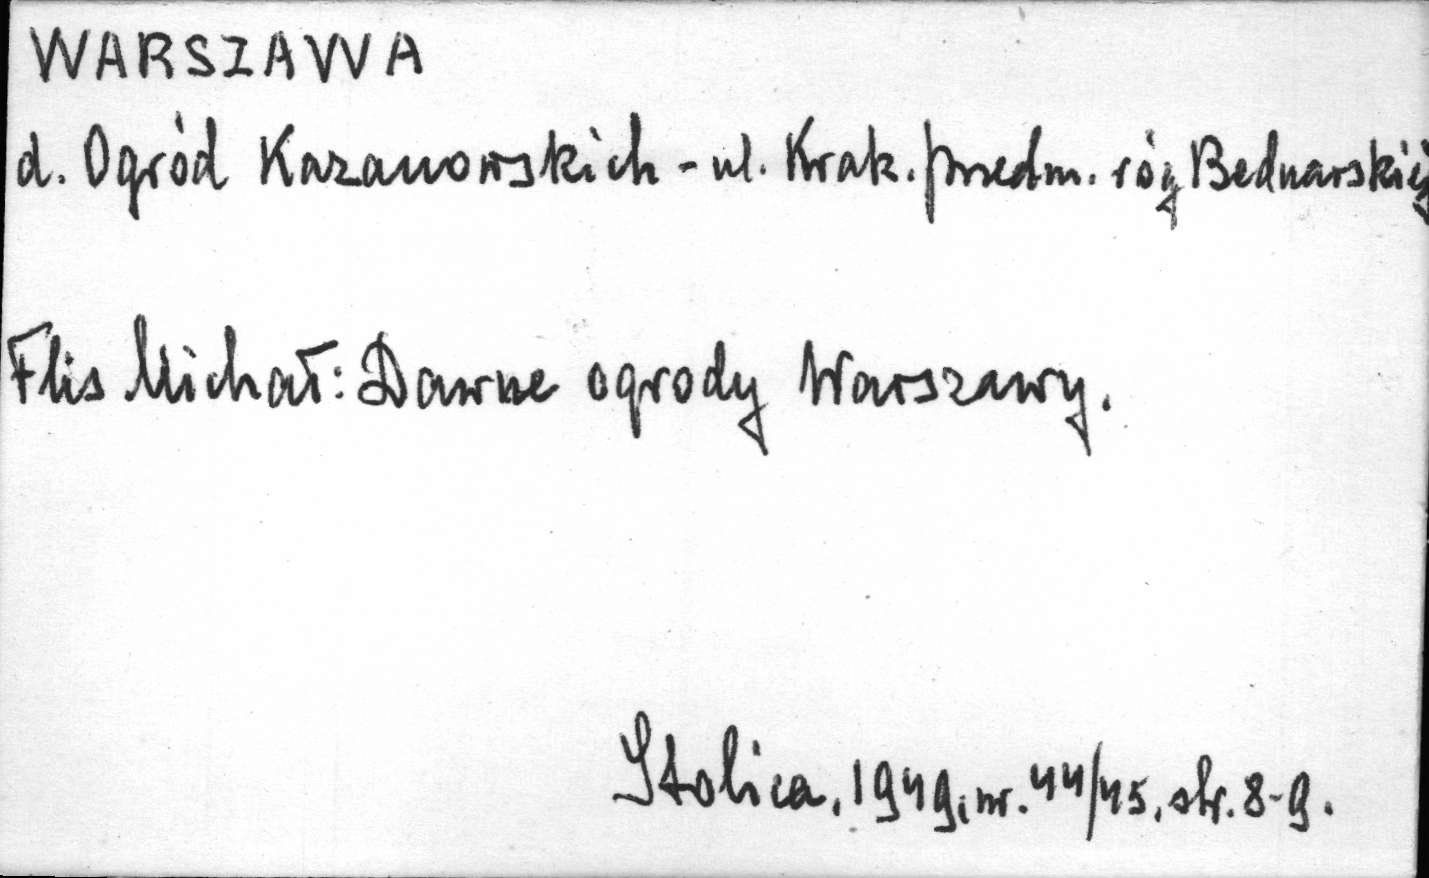 WARSZAWA
d. Ogród Kazanowskich - ul. Krak. przedm. róg Bednarskiej
Flis Michał: Dawne ogrody Warszawy.
Stolica, 1949, nr. 44/45, str. 8-9.